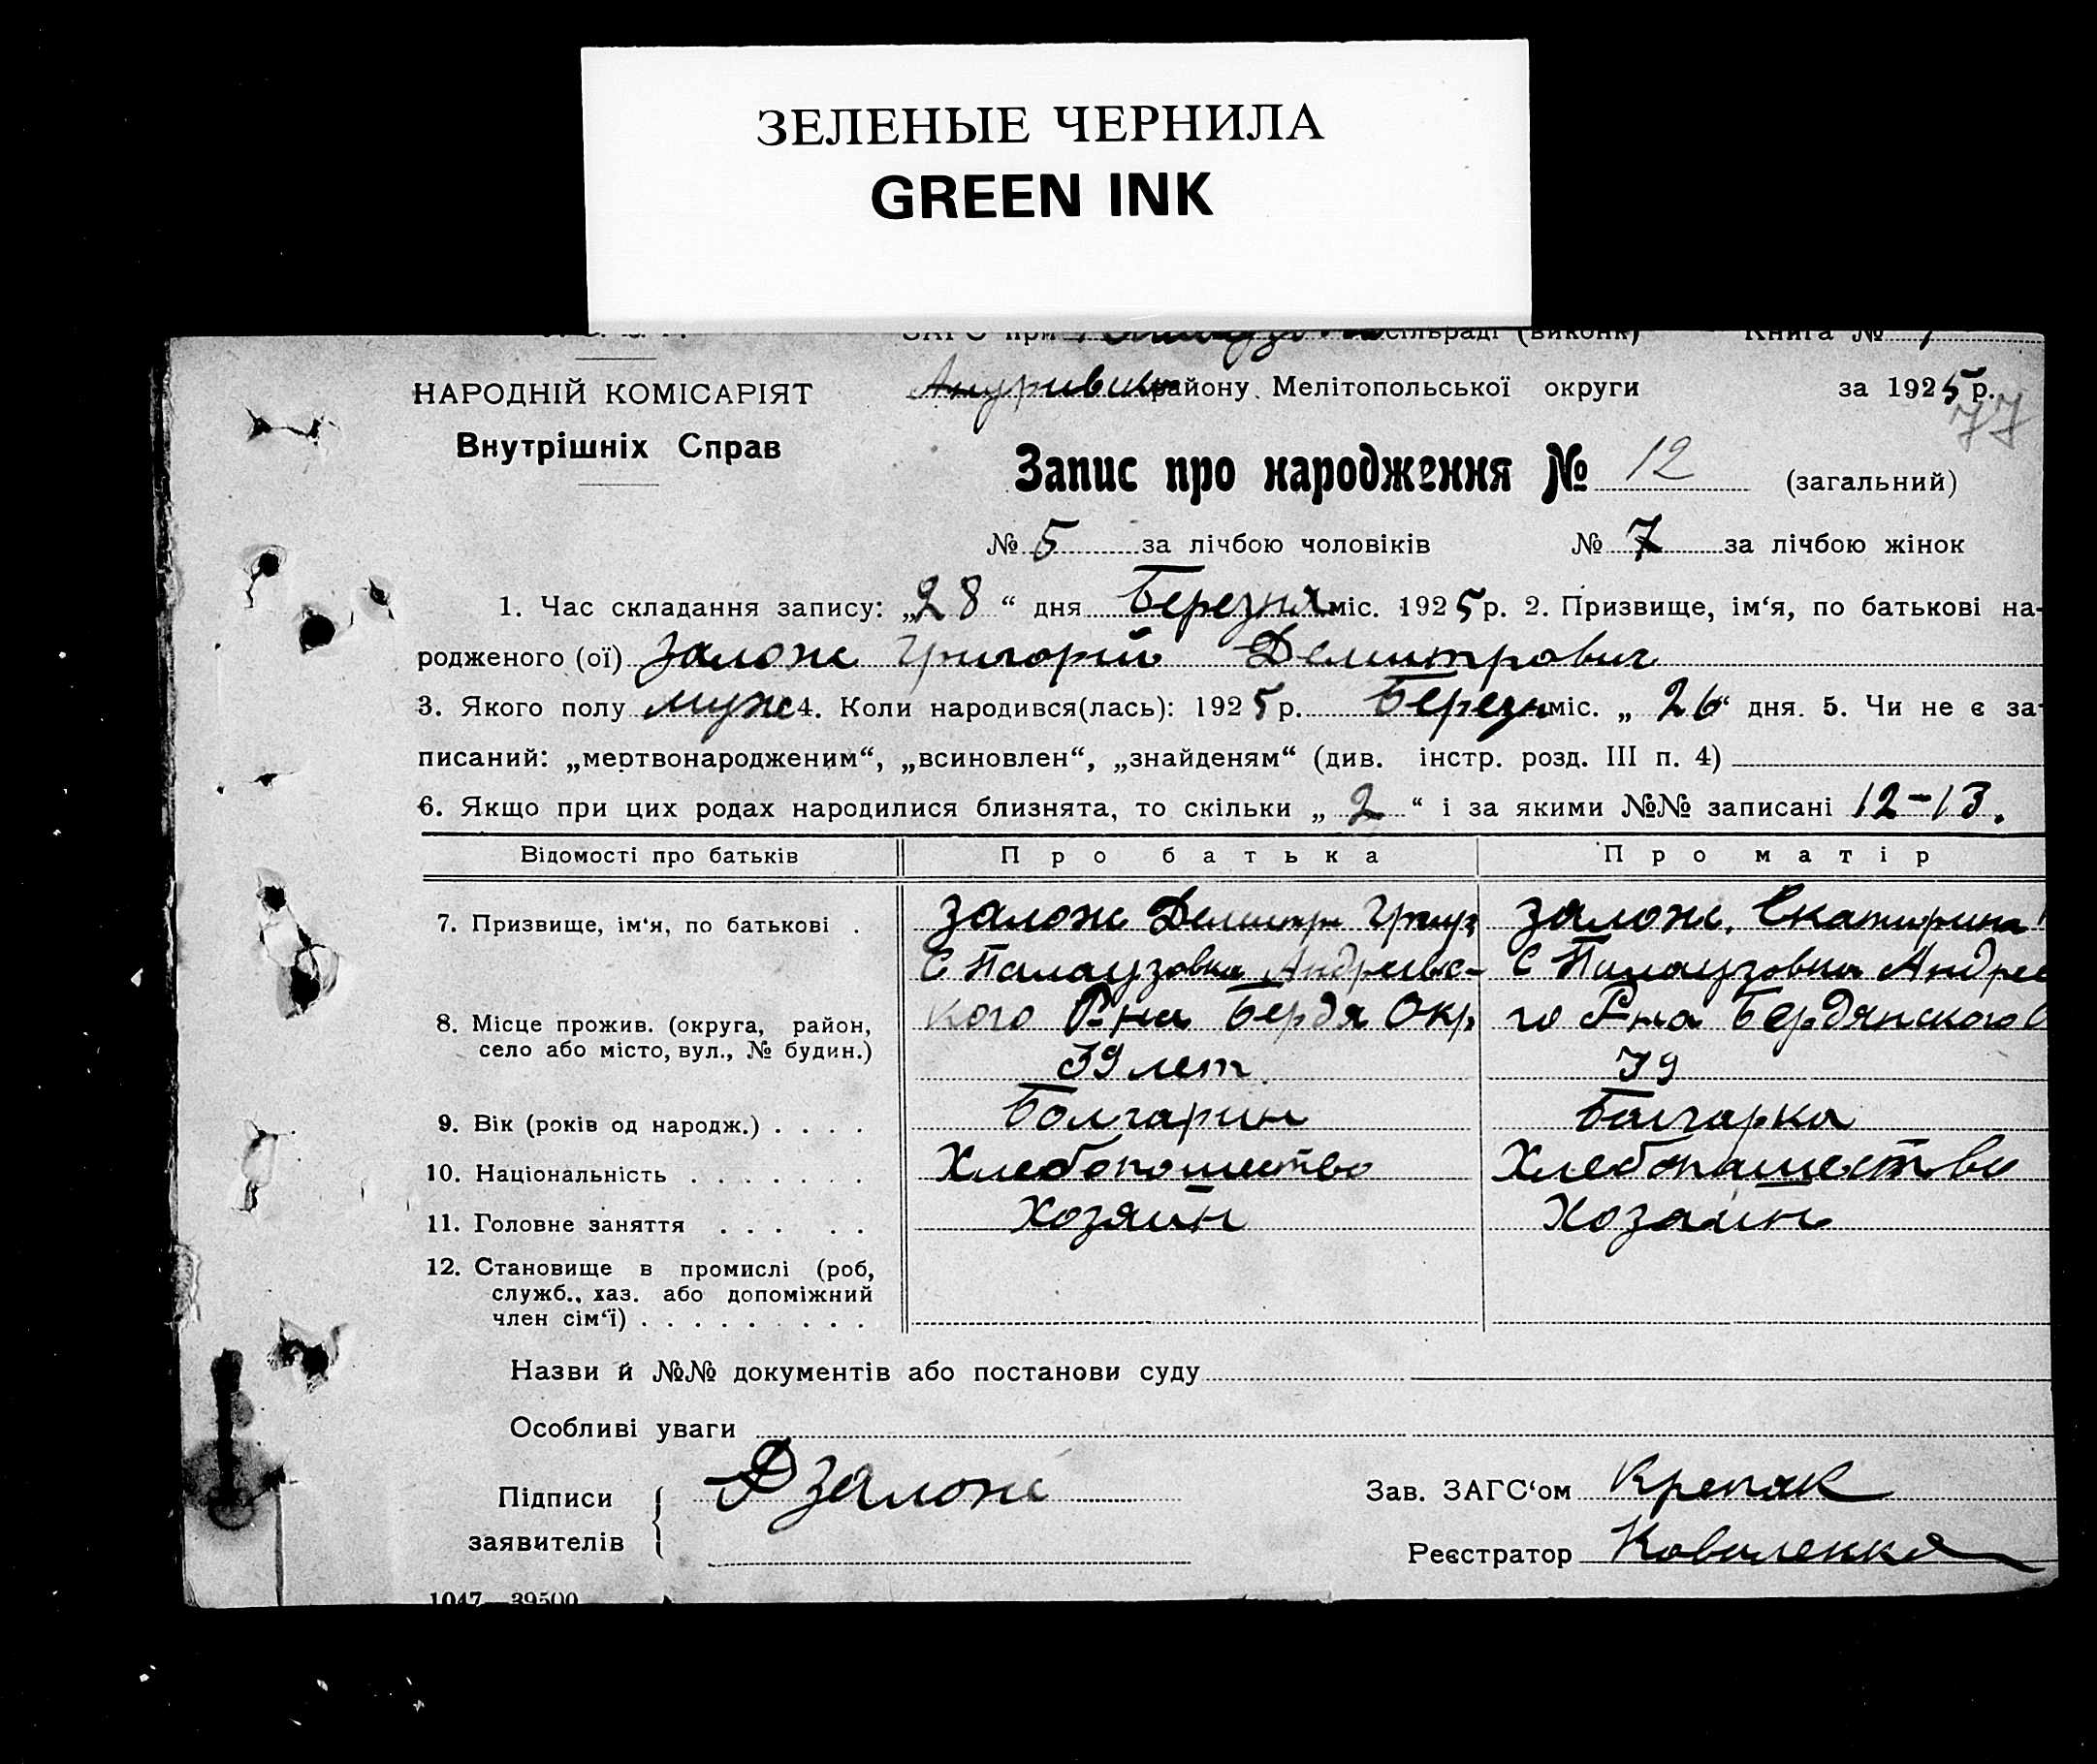 ЗЕЛЕНЫЕ ЧЕРНИЛА
GREEN INK
ЗАГС при сільраді (виконк) Книга № 1
НАРОДНІЙ КОМІСАРІЯТ району Мелітопольської округи за 1925 р.
77
Внутрішніх Справ
Запис про народження № 12 (загальний)
№ 5 за лічбою чоловіків № 7 за лічбою жінок
1. Час складання запису: „28“ дня Березня міс. 1925 р. 2. Призвище, ім‘я, по батькові на-
родженого (ої) Залож Григорий Демитрович
3. Якого полу муж 4. Коли народився(лась): 1925 р. Березн міс. „26“ дня. 5. Чи не є за-
писаний: „мертвонародженим“, „всиновлен“, „знайденям“ (див. інстр. розд. III п. 4)
6. Якщо при цих родах народилися близнята, то скільки „2“ і за якими №№ записані 12-13.
Відомості про батьків Про батька Про матір
7. Призвище, ім‘я, по батькові . Залож Демитр Григ Залож. Екатирина
С Палаузовка Андриевс- С Палаузовка Андрее
8. Місце прожив. (округа, район, кого Р-на Бердя Окр. го Р-на Бердянского О
село або місто, вул., № будин.)
39 лет 39
9. Вік (років од народж.) . . . . Болгарин Болгарка
10. Національність . . . . . . . Хлебопошество Хлебопашество
11. Головне заняття . . . . . Хозяин Хозаин
12. Становище в промислі (роб,
служб., хаз. або допоміжний
член сім‘ї) . . . . . . . . .
Назви й №№ документів або постанови суду
Особливі уваги
Підписи Д Залож Зав. ЗАГС‘ом Крепак
заявителів Реєстратор Коваленко
1047—39500